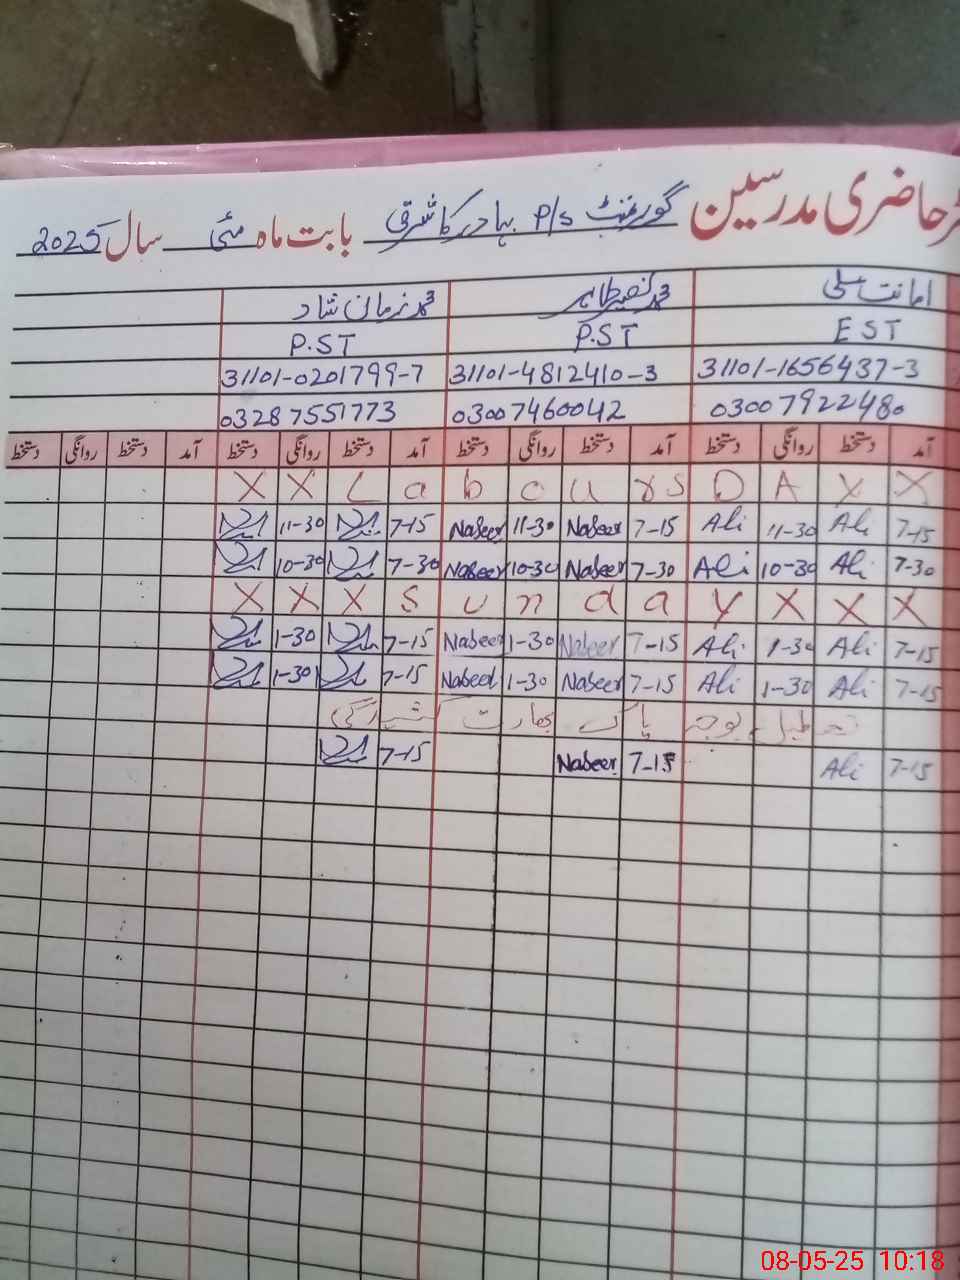 حاضری مدرسین گورنمنٹ P/S بہادر کا شرقی بابت ماہ مئی سال 2025
امانت علی محمد نصیر طاہر محمد نرمان شاد
EST P.ST P.ST
31101-1656437-3 31101-4812410-3 31101-0201799-7
03007922480 03007460042 03287551773
آمد دستخط روانگی دستخط آمد دستخط روانگی دستخط آمد دستخط روانگی دستخط آمد دستخط روانگی دستخط
X X L a b o u r s D A Y X
11-30 7-15 Naseer 11-30 Naseer 7-15 Ali 11-30 Ali 7-15
10-30 7-30 Naseer 10-30 Naseer 7-30 Ali 10-30 Ali 7-30
X X X S u n d a y X X X
1-30 7-15 Naseer 1-30 Naseer 7-15 Ali 1-30 Ali 7-15
1-30 7-15 Naseer 1-30 Naseer 7-15 Ali 1-30 Ali 7-15
تعطیل بوجہ پاک بھارت کشیدگی
7-15 Naseer 7-15 Ali 7-15
08-05-25 10:18